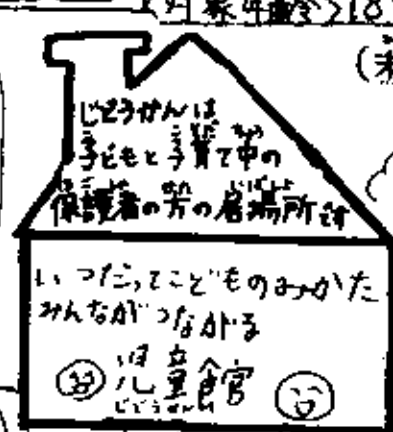 対象年齢>18
(未
じどうかんは
子どもと子育て中の
保護者の方の居場所です
いつだってこどものみかた
みんながつながる
児童館
じどうかん